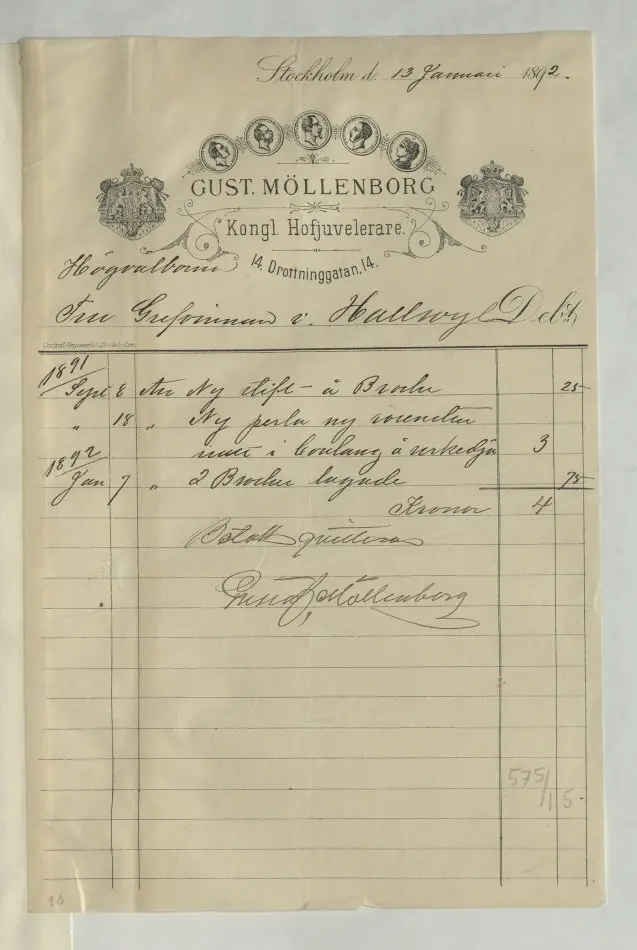 Stockholm d. 13 Januari 1892.
GUST. MÖLLENBORG
Kongl. Hofjuvelerare.
14. Drottninggatan, 14.
Högvälborna
Fru Grefvinnan v. Hallwyl Debt,
Central-Tryckeriet, Stockholm.
1891
Sept 8 An Ny stift å Broche 25
" 18 " Ny perla ny
i å 3
1892
Jan 7 " 2 Brocher lagade 75
Kronor 4
Betalt qvitteras
Gustaf Möllenborg
575/15
90